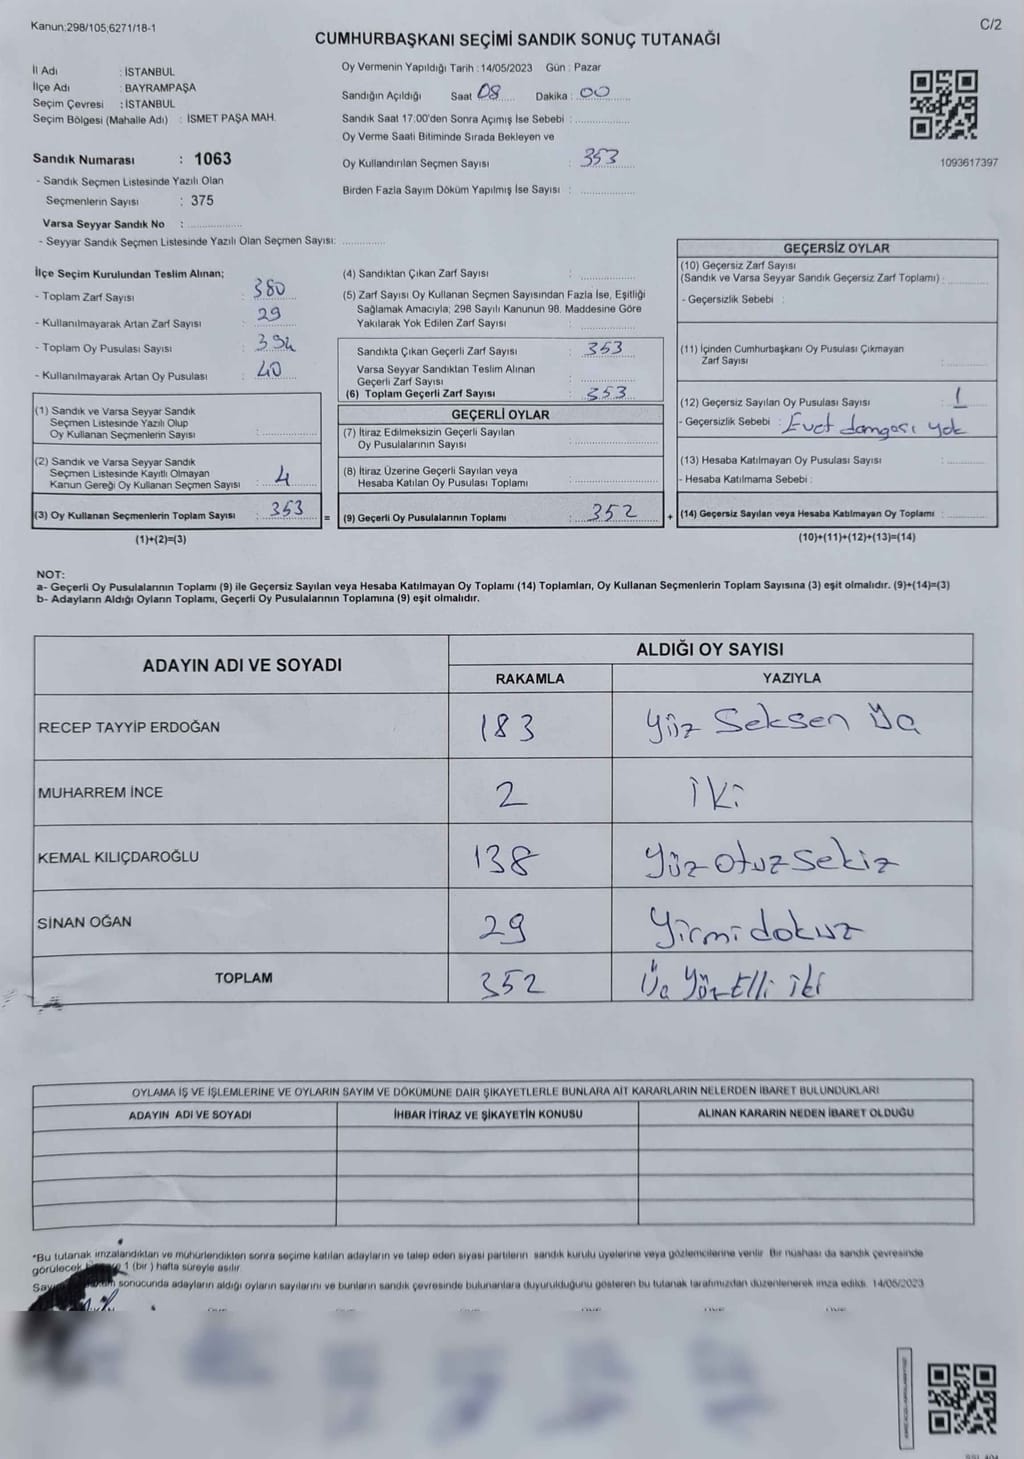 Kanun;298/105;6271/18-1
C/2
CUMHURBAŞKANI SEÇİMİ SANDIK SONUÇ TUTANAĞI
İl Adı : İSTANBUL
İlçe Adı : BAYRAMPAŞA
Seçim Çevresi : İSTANBUL
Seçim Bölgesi (Mahalle Adı) : İSMET PAŞA MAH.
Sandık Numarası : 1063
- Sandık Seçmen Listesinde Yazılı Olan
Seçmenlerin Sayısı : 375
Varsa Seyyar Sandık No :
- Seyyar Sandık Seçmen Listesinde Yazılı Olan Seçmen Sayısı:
Oy Vermenin Yapıldığı Tarih : 14/05/2023 Gün : Pazar
Sandığın Açıldığı Saat 08 Dakika : 00
Sandık Saat 17:00'den Sonra Açımış İse Sebebi :
Oy Verme Saati Bitiminde Sırada Bekleyen ve
Oy Kullandırılan Seçmen Sayısı : 353
Birden Fazla Sayım Döküm Yapılmış İse Sayısı :
1093617397
İlçe Seçim Kurulundan Teslim Alınan;
- Toplam Zarf Sayısı : 380
- Kullanılmayarak Artan Zarf Sayısı : 29
- Toplam Oy Pusulası Sayısı : 394
- Kullanılmayarak Artan Oy Pusulası : 40
(1) Sandık ve Varsa Seyyar Sandık
Seçmen Listesinde Yazılı Olup
Oy Kullanan Seçmenlerin Sayısı :
(2) Sandık ve Varsa Seyyar Sandık
Seçmen Listesinde Kayıtlı Olmayan
Kanun Gereği Oy Kullanan Seçmen Sayısı : 4
(3) Oy Kullanan Seçmenlerin Toplam Sayısı : 353
(1)+(2)=(3)
(4) Sandıktan Çıkan Zarf Sayısı :
(5) Zarf Sayısı Oy Kullanan Seçmen Sayısından Fazla İse, Eşitliği
Sağlamak Amacıyla; 298 Sayılı Kanunun 98. Maddesine Göre
Yakılarak Yok Edilen Zarf Sayısı :
Sandıkta Çıkan Geçerli Zarf Sayısı : 353
Varsa Seyyar Sandıktan Teslim Alınan
Geçerli Zarf Sayısı :
(6) Toplam Geçerli Zarf Sayısı : 353
GEÇERLİ OYLAR
(7) İtiraz Edilmeksizin Geçerli Sayılan
Oy Pusulalarının Sayısı :
(8) İtiraz Üzerine Geçerli Sayılan veya
Hesaba Katılan Oy Pusulası Toplamı :
= (9) Geçerli Oy Pusulalarının Toplamı : 352 +
GEÇERSİZ OYLAR
(10) Geçersiz Zarf Sayısı
(Sandık ve Varsa Seyyar Sandık Geçersiz Zarf Toplamı) :
- Geçersizlik Sebebi :
(11) İçinden Cumhurbaşkanı Oy Pusulası Çıkmayan
Zarf Sayısı :
(12) Geçersiz Sayılan Oy Pusulası Sayısı : 1
- Geçersizlik Sebebi : Evet damgası yok
(13) Hesaba Katılmayan Oy Pusulası Sayısı :
- Hesaba Katılmama Sebebi :
(14) Geçersiz Sayılan veya Hesaba Katılmayan Oy Toplamı :
(10)+(11)+(12)+(13)=(14)
NOT:
a- Geçerli Oy Pusulalarının Toplamı (9) ile Geçersiz Sayılan veya Hesaba Katılmayan Oy Toplamı (14) Toplamları, Oy Kullanan Seçmenlerin Toplam Sayısına (3) eşit olmalıdır. (9)+(14)=(3)
b- Adayların Aldığı Oyların Toplamı, Geçerli Oy Pusulalarının Toplamına (9) eşit olmalıdır.
ADAYIN ADI VE SOYADI ALDIĞI OY SAYISI
RAKAMLA YAZIYLA
RECEP TAYYİP ERDOĞAN 183 Yüz Seksen Üç
MUHARREM İNCE 2 iki
KEMAL KILIÇDAROĞLU 138 Yüz otuz sekiz
SİNAN OĞAN 29 Yirmi dokuz
TOPLAM 352 Üç Yüz Elli iki
OYLAMA İŞ VE İŞLEMLERİNE VE OYLARIN SAYIM VE DÖKÜMÜNE DAİR ŞİKAYETLERLE BUNLARA AİT KARARLARIN NELERDEN İBARET BULUNDUKLARI
ADAYIN ADI VE SOYADI İHBAR İTİRAZ VE ŞİKAYETİN KONUSU ALINAN KARARIN NEDEN İBARET OLDUĞU
*Bu tutanak imzalandıktan ve mühürlendikten sonra seçime katılan adayların ve talep eden siyasi partilerin sandık kurulu üyelerine veya gözlemcilerine verilir. Bir nüshası da sandık çevresinde
görülecek 1 (bir) hafta süreyle asılır.
sonucunda adayların aldığı oyların sayılarını ve bunların sandık çevresinde bulunanlara duyurulduğunu gösteren bu tutanak tarafımızdan düzenlenerek imza edildi. 14/05/2023